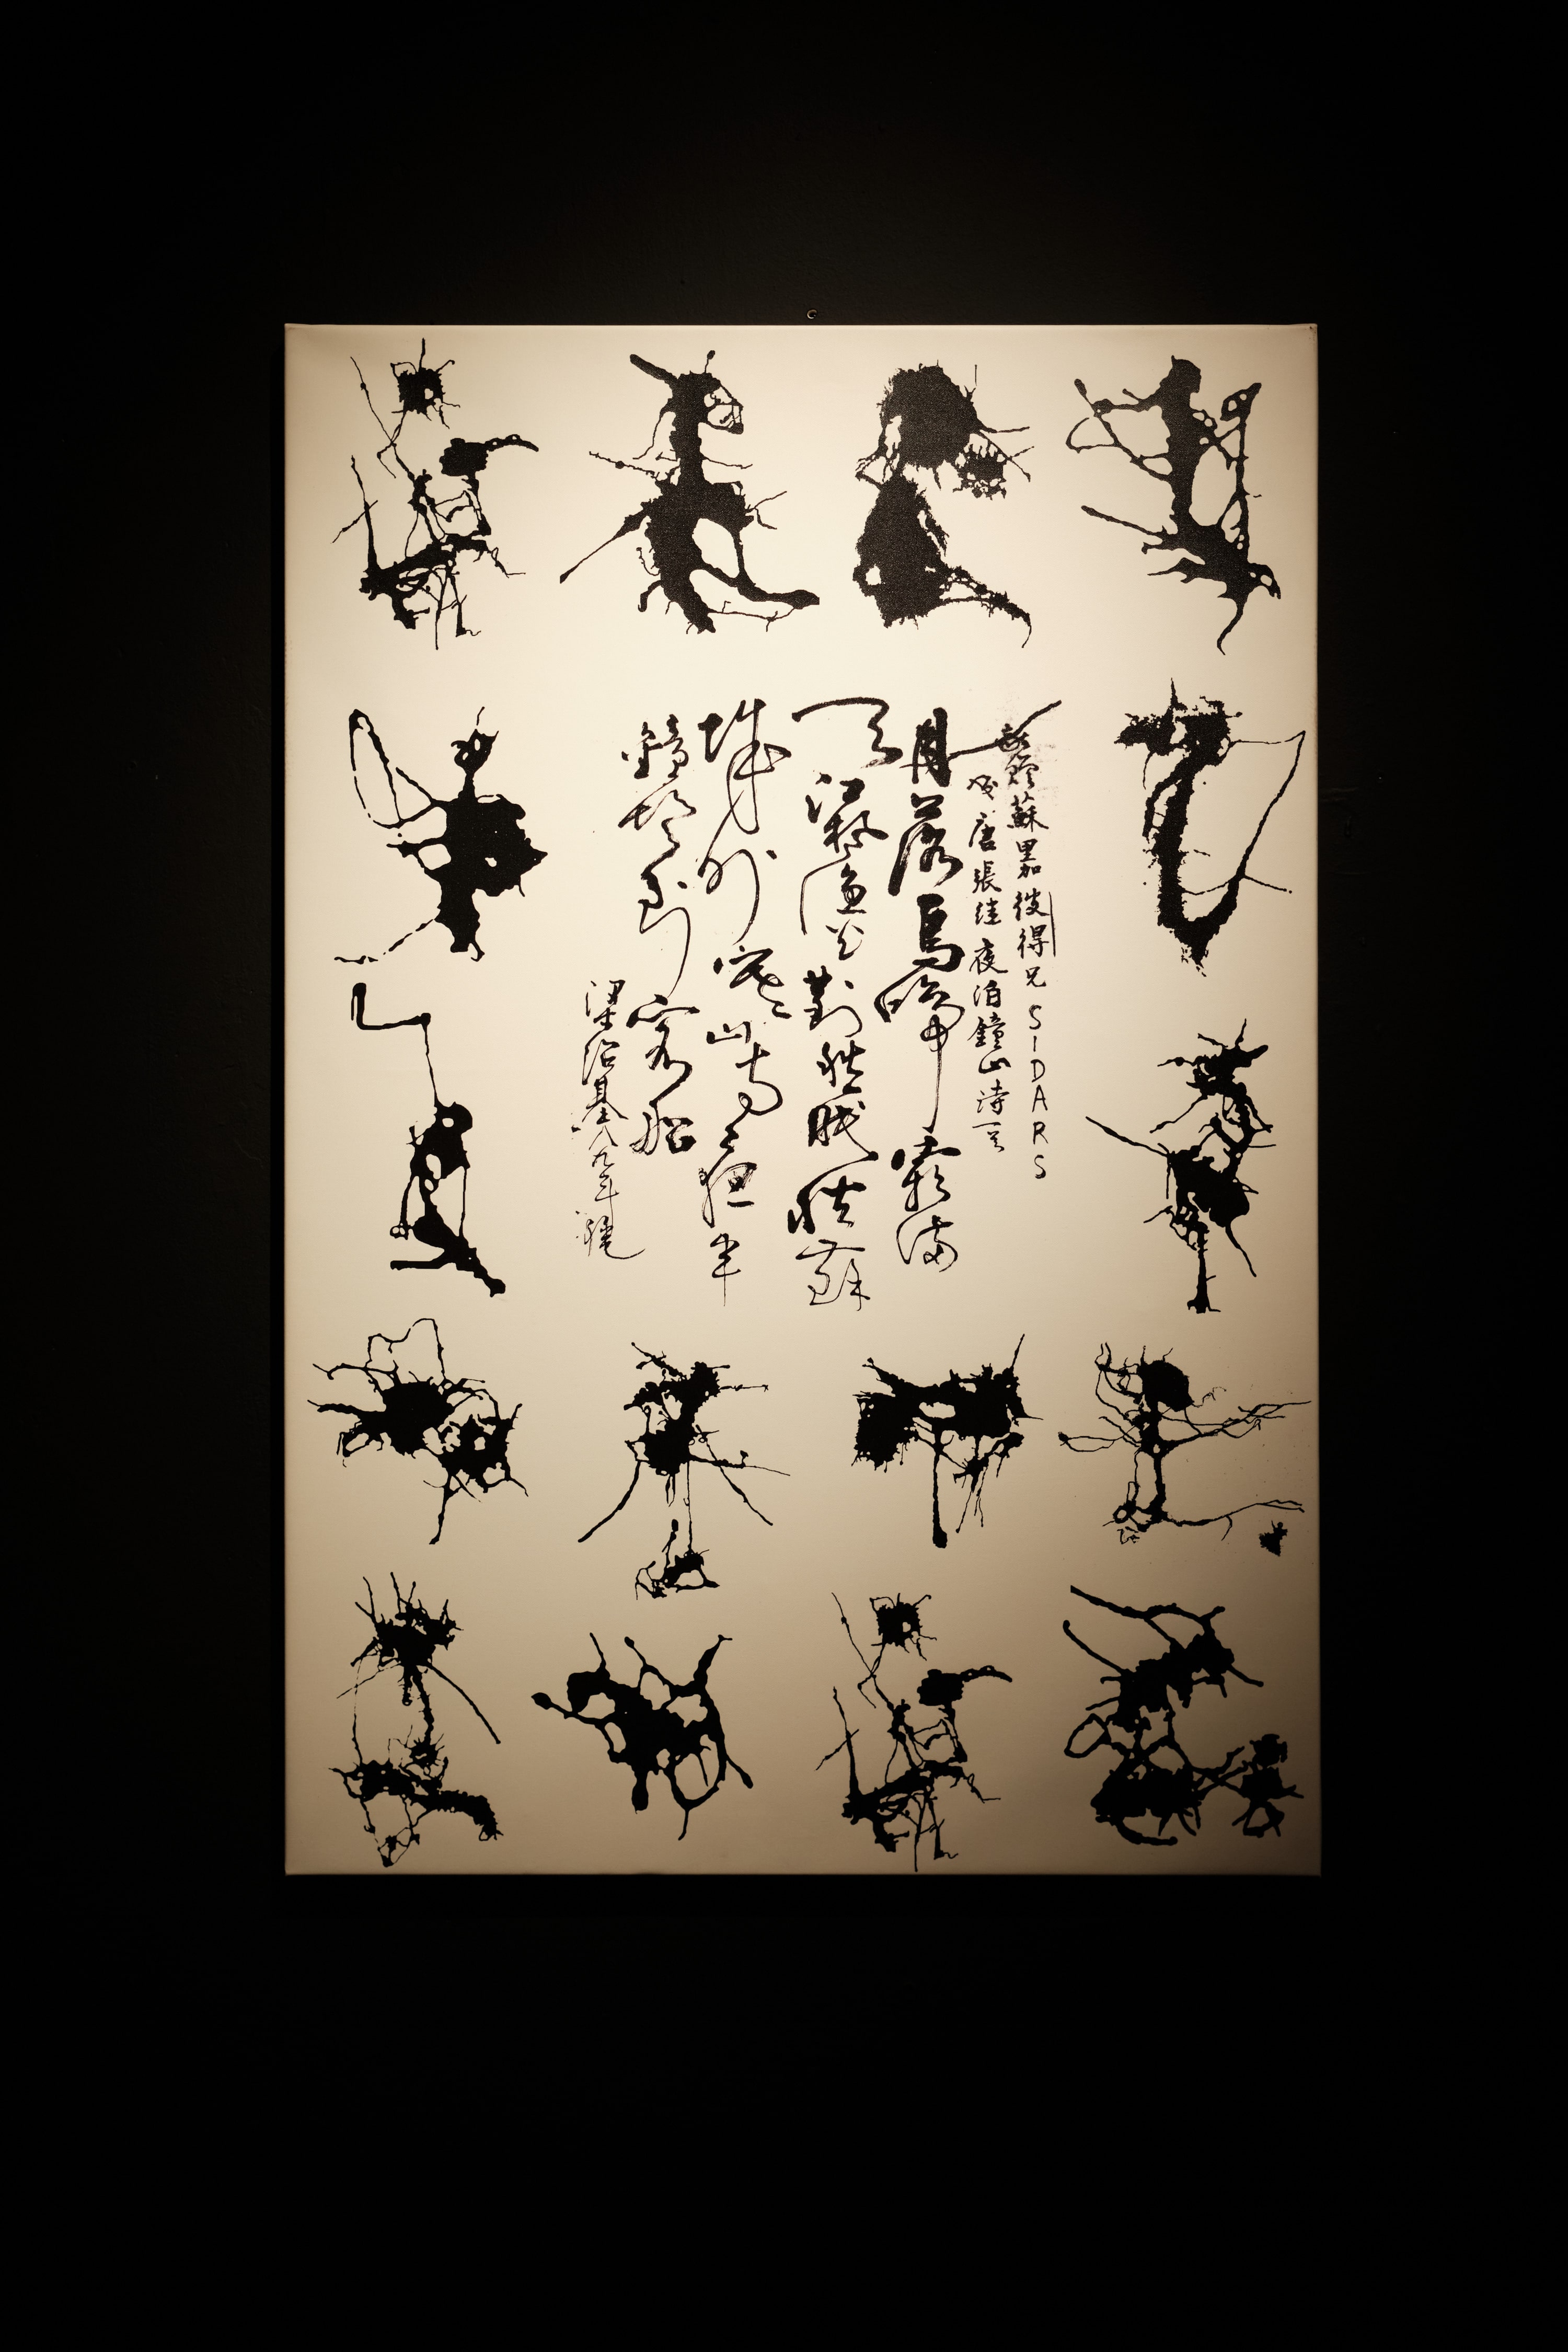 贈蘇里加彼得兄 SIDARS
唐張继夜泊鐘山詩
月落烏啼霜滿
天江楓漁火對愁眠姑蘇
城外寒山寺夜半
鐘聲到客船
梁 基八九年